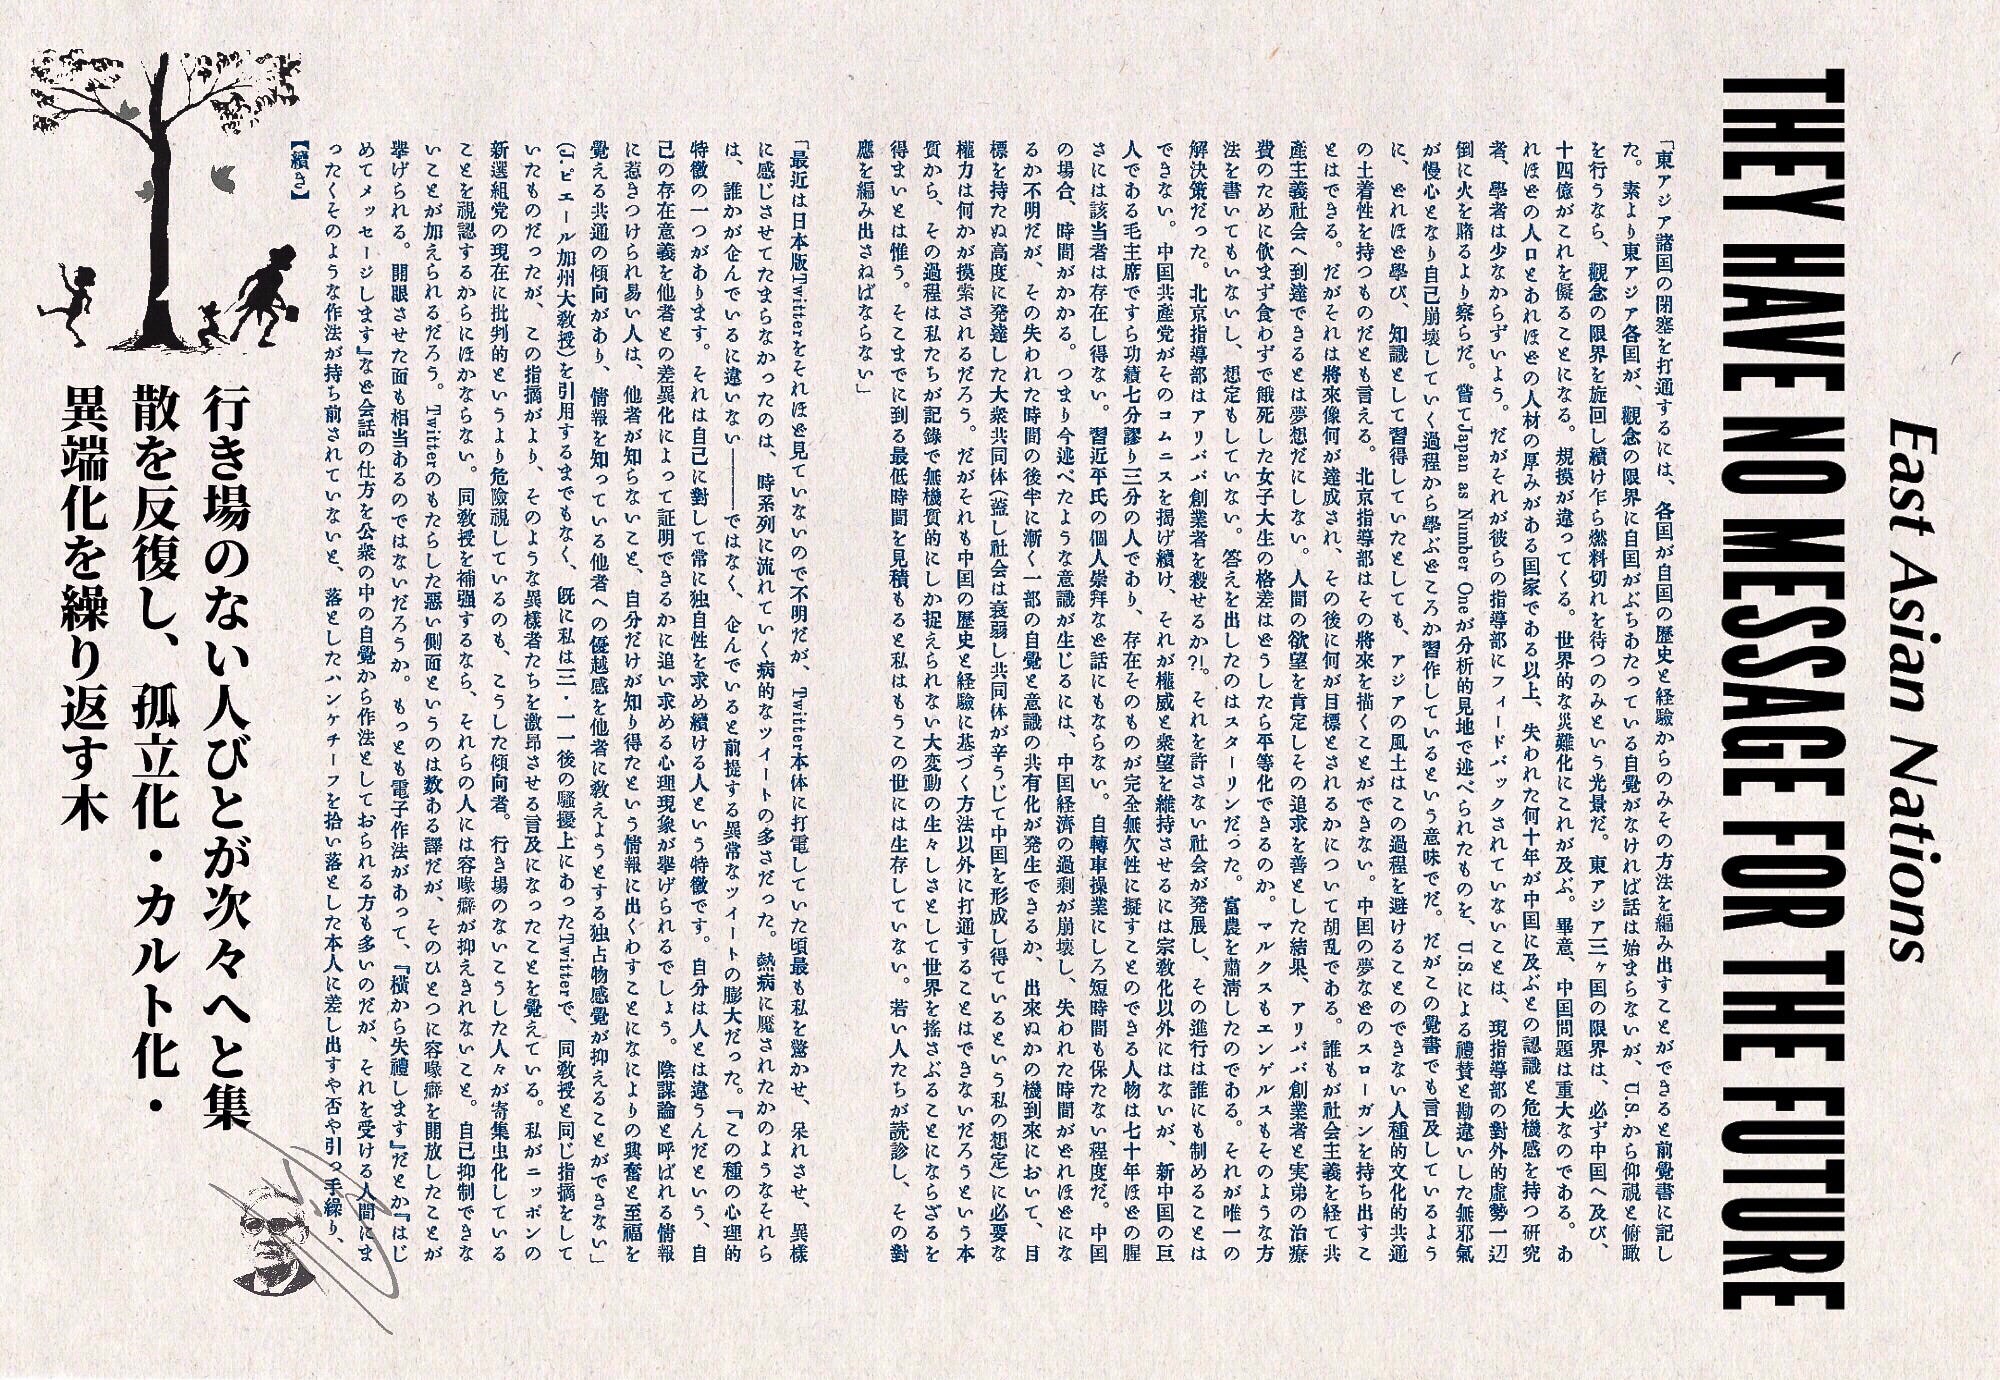 East Asian Nations
THEY HAVE NO MESSAGE FOR THE FUTURE
「東アジア諸国の閉塞を打通するには、各国が自国の歴史と経験からのみその方法を編み出すことができると前覺書に記し
た。素より東アジア各国が、觀念の限界に自国がぶちあたっている自覺がなければ話は始まらないが、U.S.から仰視と俯瞰
を行うなら、觀念の限界を旋回し續け乍ら燃料切れを待つのみという光景だ。東アジア三ヶ国の限界は、必ず中国へ及び、
十四億がこれを儗ることになる。規摸が違ってくる。世界的な災難化にこれが及ぶ。畢意、中国問題は重大なのである。あ
れほどの人口とあれほどの人材の厚みがある国家である以上、失われた何十年が中国に及ぶとの認識と危機感を持つ研究
者、學者は少なからずいよう。だがそれが彼らの指導部にフィードバックされていないことは、現指導部の對外的虛勢一辺
倒に火を賭るより察らだ。嘗てJapan as Number Oneが分析的見地で述べられたものを、U.S.による禮賛と勘違いした無邪氣
が慢心となり自己崩壊していく過程から學ぶどころか習作しているという意味でだ。だがこの覺書でも言及しているよう
に、どれほど學び、知識として習得していたとしても、アジアの風土はこの過程を避けることのできない人種的文化的共通
の土着性を持つものだとも言える。北京指導部はその將來を描くことができない。中国の夢などのスローガンを持ち出すこ
とはできる。だがそれは將來像何が達成され、その後に何が目標とされるかについて胡乱である。誰もが社会主義を経て共
產主義社会へ到達できるとは夢想だにしない。人間の欲望を肯定しその追求を善とした結果、アリババ創業者と実弟の治療
費のために飲まず食わずで餓死した女子大生の格差はどうしたら平等化できるのか。マルクスもエンゲルスもそのような方
法を書いてもいないし、想定もしていない。答えを出したのはスターリンだった。富農を肅淸したのである。それが唯一の
解決策だった。北京指導部はアリババ創業者を殺せるか?!。それを許さない社会が発展し、その進行は誰にも制めることは
できない。中国共産党がそのコムニスを揭げ續け、それが權威と衆望を維持させるには宗敎化以外にはないが、新中国の巨
人である毛主席ですら功績七分謬り三分の人であり、存在そのものが完全無欠性に擬すことのできる人物は七十年ほどの腥
さには該当者は存在し得ない。習近平氏の個人崇拜など話にもならない。自轉車操業にしろ短時間も保たない程度だ。中国
の場合、時間がかかる。つまり今述べたような意識が生じるには、中国経済の過剰が崩壊し、失われた時間がどれほどにな
るか不明だが、その失われた時間の後半に漸く一部の自覺と意識の共有化が発生できるか、出來ぬかの機到來において、目
標を持たぬ高度に発達した大衆共同体(蓋し社会は衰弱し共同体が辛うじて中国を形成し得ているという私の想定)に必要な
權力は何かが摸索されるだろう。だがそれも中国の歷史と経驗に基づく方法以外に打通することはできないだろうという本
質から、その過程は私たちが記錄で無機質的にしか捉えられない大変動の生々しさとして世界を搖さぶることにならざるを
得まいとは惟う。そこまでに到る最低時間を見積もると私はもうこの世には生存していない。若い人たちが読診し、その對
應を編み出さねばならない」
「最近は日本版Twitterをそれほど見ていないので不明だが、Twitter本体に打電していた頃最も私を驚かせ、呆れさせ、異樣
に感じさせてたまらなかったのは、時系列に流れていく病的なツイートの多さだった。熱病に魘されたかのようなそれら
は、誰かが企んでいるに違いない―――ではなく、企んでいると前提する異常なツイートの膨大だった。『この種の心理的
特徵の一つがあります。それは自己に對して常に独自性を求め續ける人という特徵です。自分は人とは違うんだという、自
己の存在意義を他者との差異化によって証明できるかに追い求める心理現象が擧げられるでしょう。陰謀論と呼ばれる情報
に惹きつけられ易い人は、他者が知らないこと、自分だけが知り得たという情報に出くわすことになによりの興奮と至福を
覺える共通の傾向があり、情報を知っている他者への優越感を他者に教えようとする独占物感覺が抑えることができない」
(J.ピエール加州大敎授)を引用するまでもなく、既に私は三・一一後の騷擾上にあったTwitterで、同敎授と同じ指摘をして
いたものだったが、この指摘がより、そのような異樣者たちを激昂させる言及になったことを覺えている。私がニッポンの
新選組党の現在に批判的というより危險視しているのも、こうした傾向者。行き場のないこうした人々が寄集虫化している
ことを視認するからにほかならない。同敎授を補强するなら、それらの人には容喙癖が抑えきれないこと。自己抑制できな
いことが加えられるだろう。Twitterのもたらした悪い側面というのは数ある譯だが、そのひとつに容喙癖を開放したことが
擧げられる。開眼させた面も相当あるのではないだろうか。もっとも電子作法があって、『橫から失禮します』だとか『はじ
めてメッセージします』など会話の仕方を公衆の中の自覺から作法としておられる方も多いのだが、それを受ける人間にま
ったくそのような作法が持ち前されていないと、落としたハンケチーフを拾い落とした本人に差し出すや否や引っ手繰り、
【續き】
行き場のない人びとが次々へと集
散を反復し、孤立化・カルト化・
異端化を繰り返す木